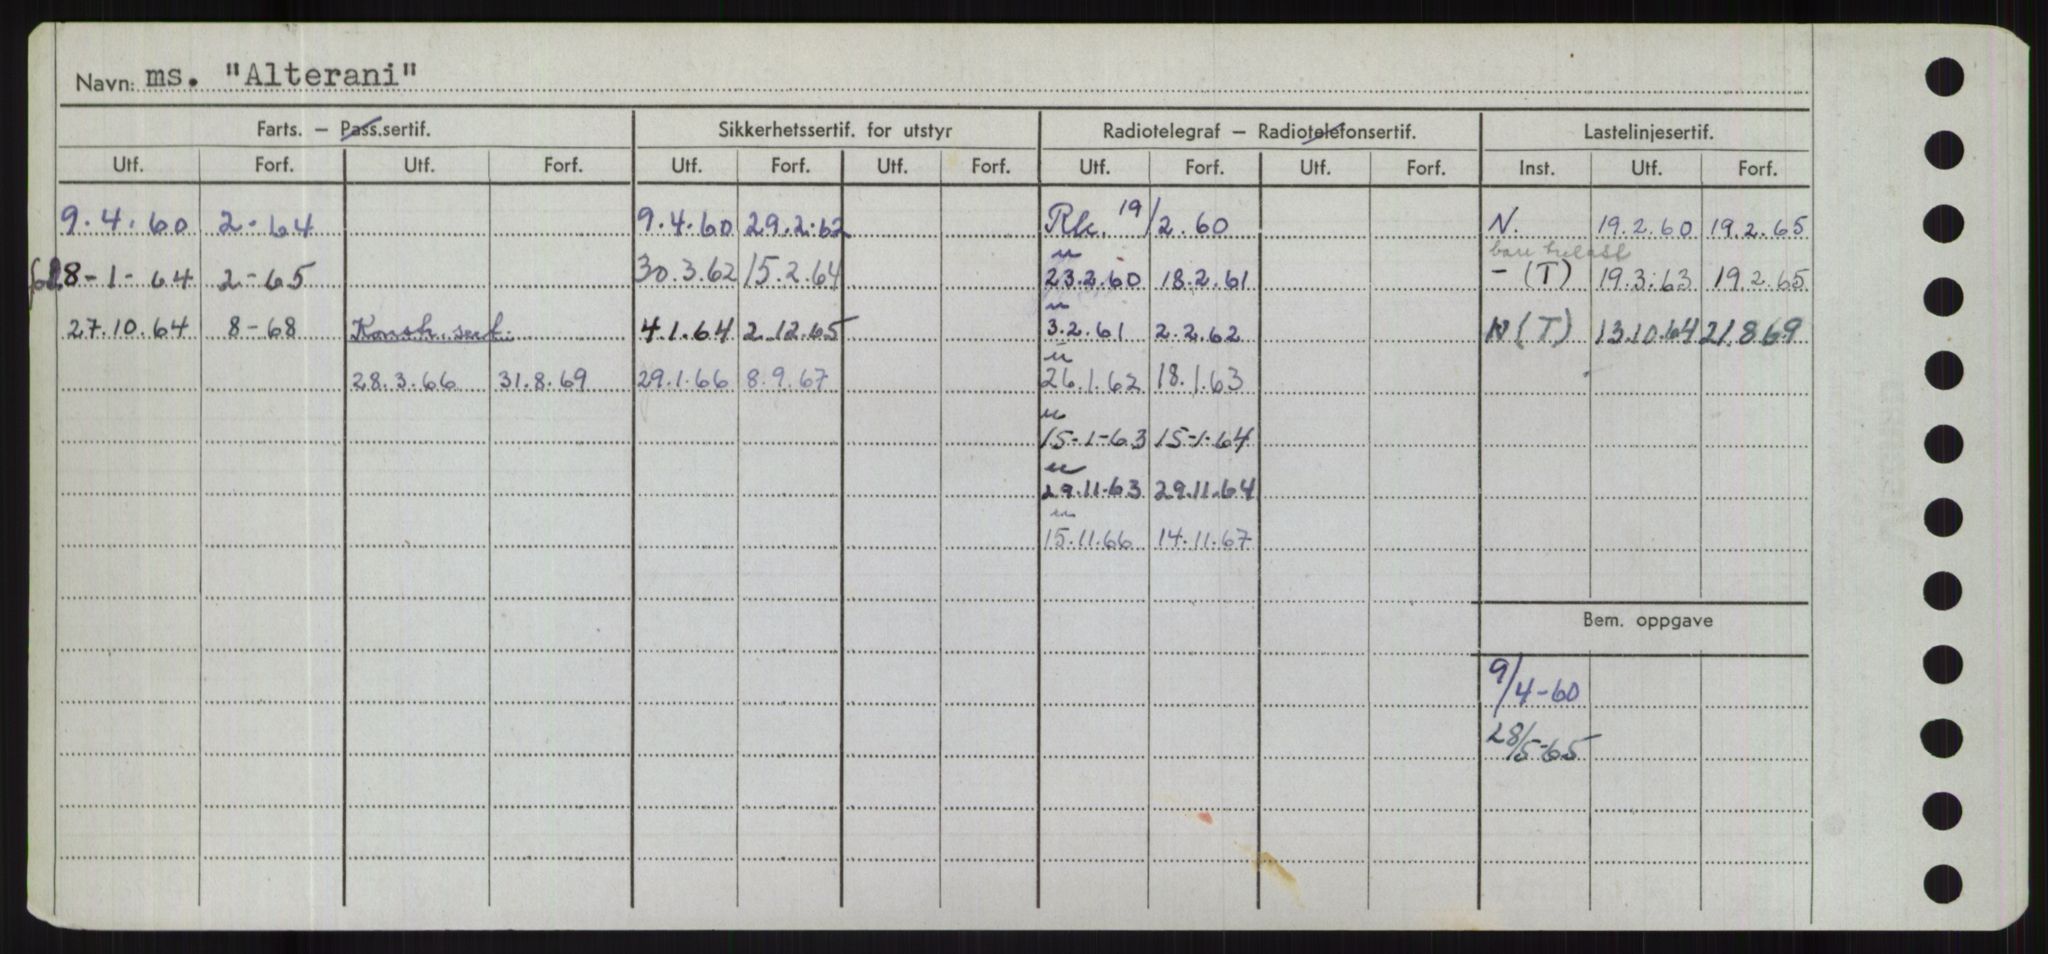 Navn: ms. "Alterani"
Farts. – Pass.sertif. Sikkerhetssertif. for utstyr Radiotelegraf – Radiotelefonsertif. Lastelinjesertif.
Utf. Forf. Utf. Forf. Utf. Forf. Utf. Forf. Utf. Forf. Utf. Forf. Inst. Utf. Forf.
9.4.60 2-64 9.4.60 29.2.62 Rk. 19/2.60 N. 19.2.60 19.2.65
8-1-64 2-65 30.3.62 15.2.64 23.2.60 18.2.61 -(T) 19.3.63 19.2.65
27.10.64 8-68 Konstr. sert. 4.1.64 2.12.65 3.2.61 2.2.62 N(T) 13.10.64 21.8.69
28.3.66 31.8.69 29.1.66 8.9.67 26.1.62 18.1.63
15-1-63 15-1-64
29.11.63 29.11.64
15.11.66 14.11.67
Bem. oppgave
9/4-60
28/5-65